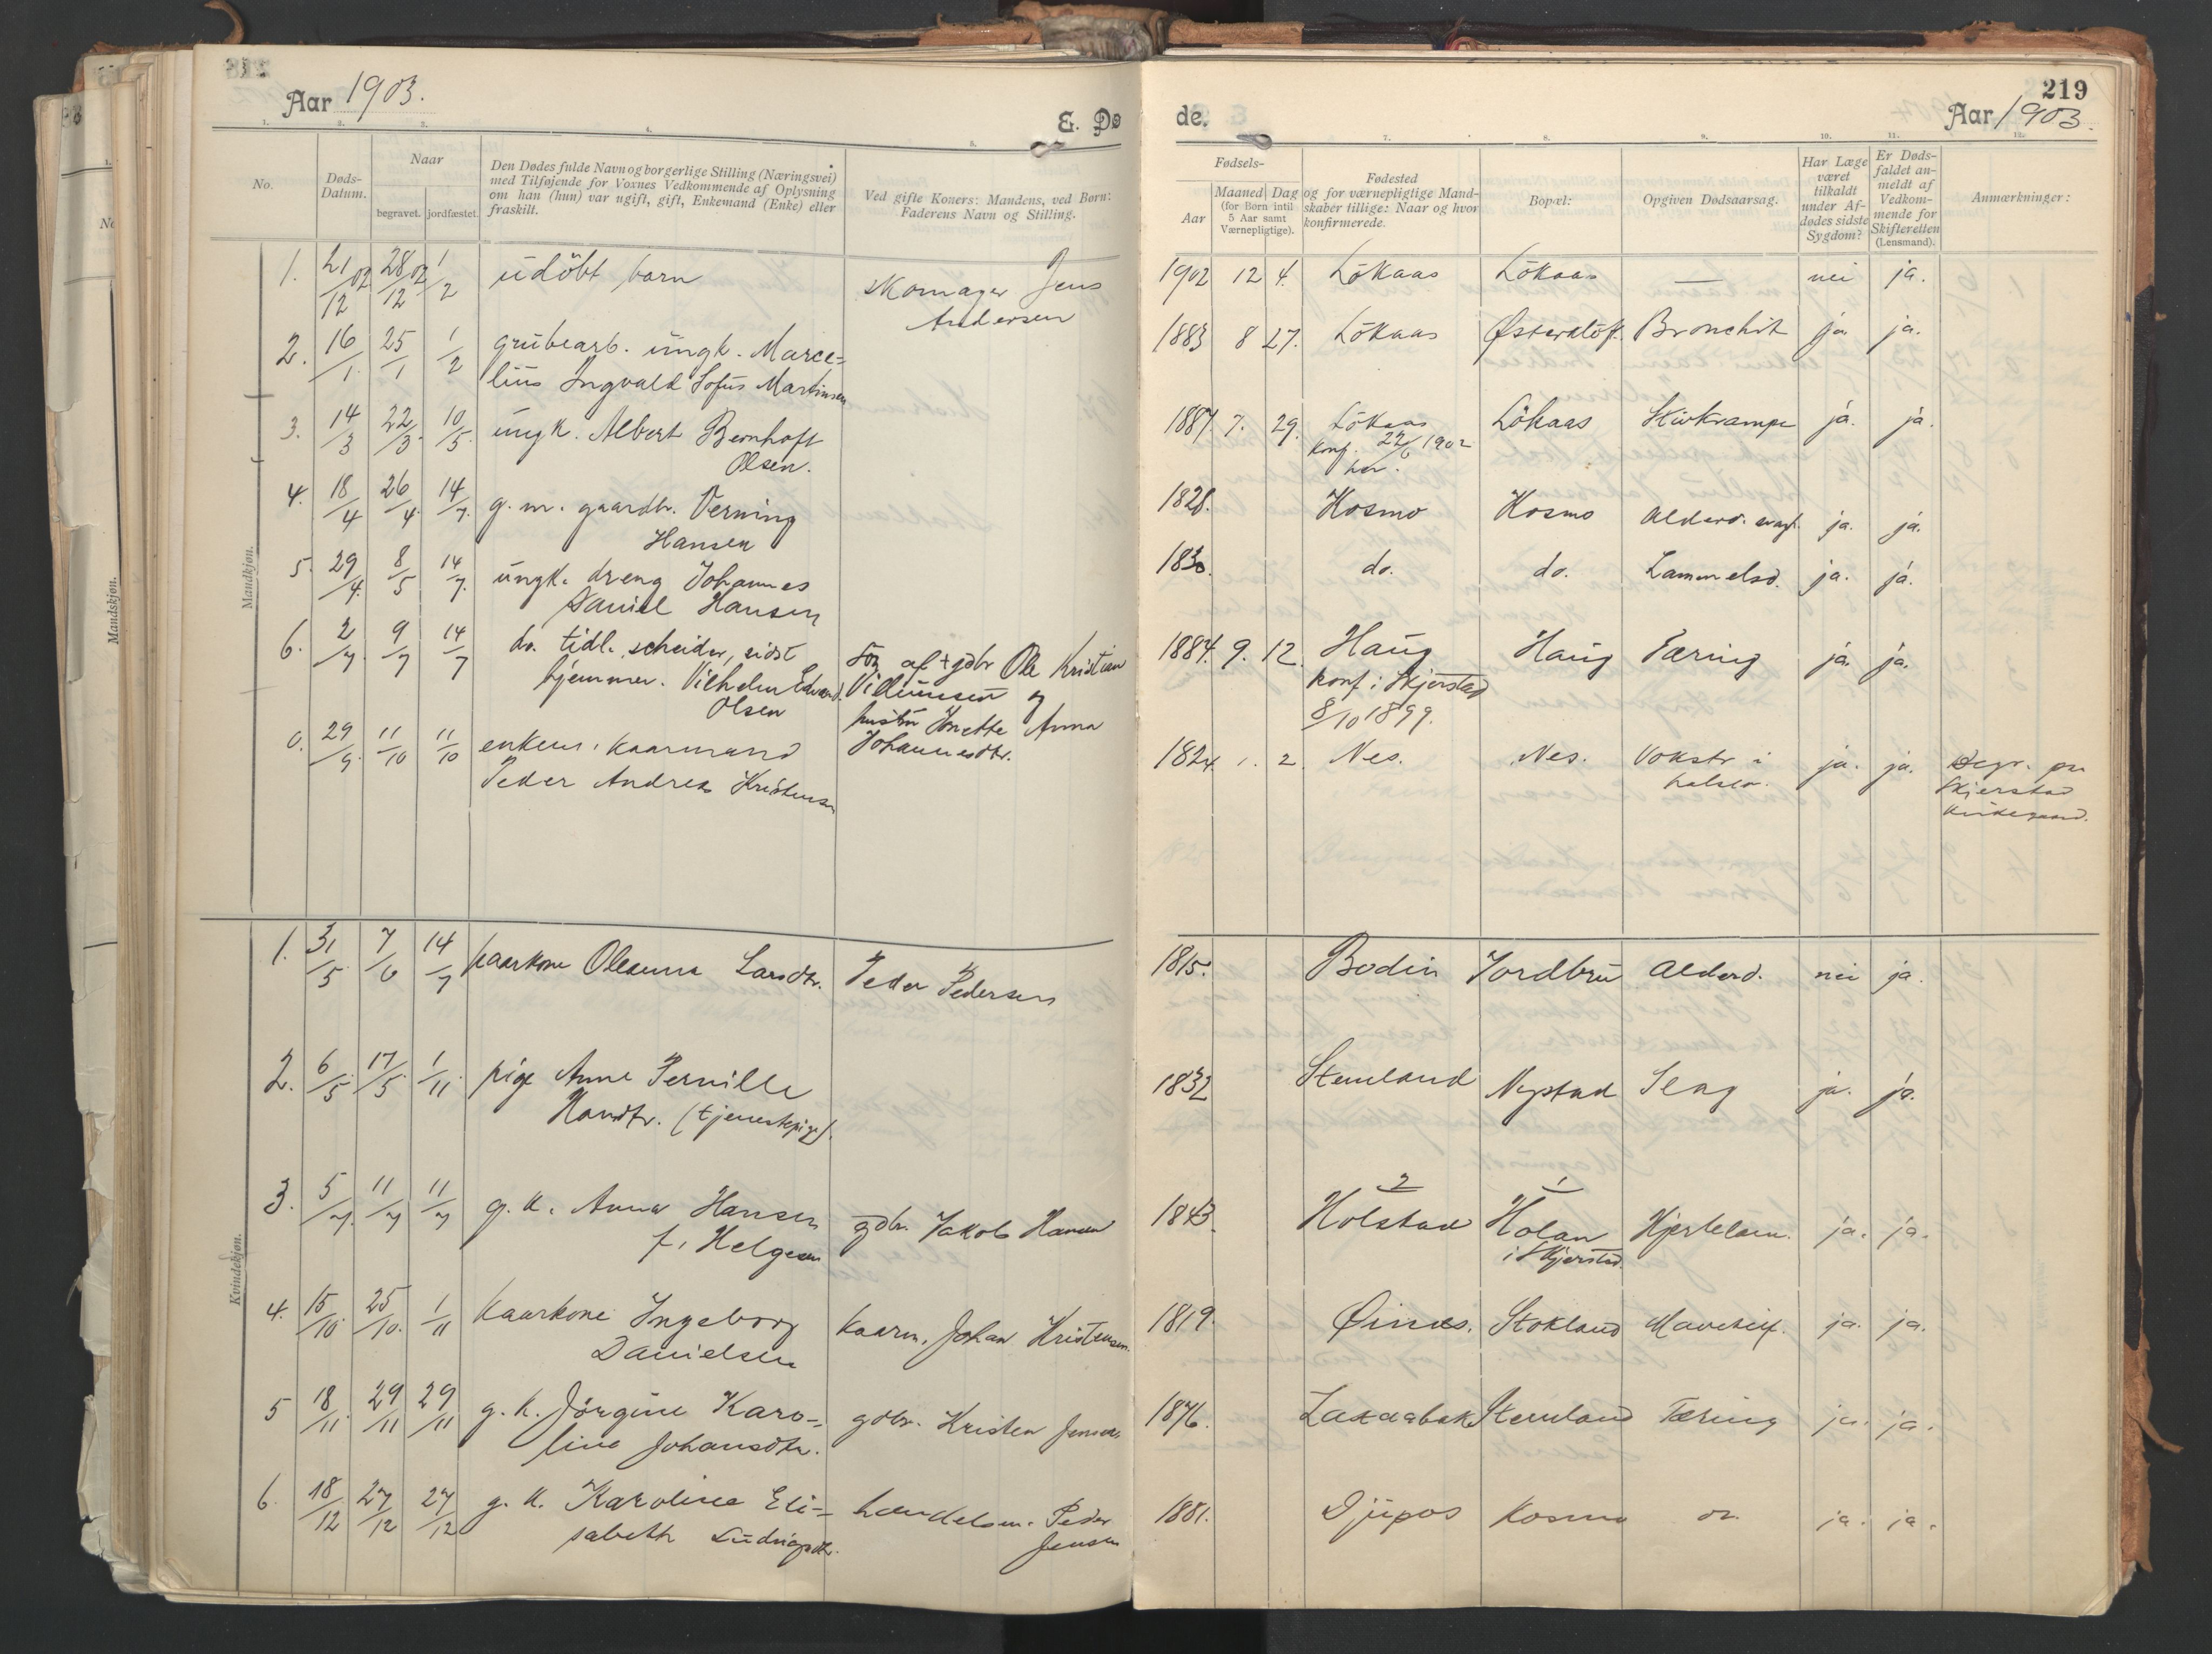 Aar 1903.
E. Døde.
219
Aar 1903.
No.
Døds-Datum.
Naar
begravet.
jordfæstet.
Den Dødes fulde Navn og borgerlige Stilling (Næringsvei)
med Tilføjende for Voxnes Vedkommende af Oplysning
om han (hun) var ugift, gift, Enkemand (Enke) eller
fraskilt.
Ved gifte Koners: Mandens, ved Børn:
Faderens Navn og Stilling.
Fødsels-
Aar
Maaned Dag
(for Børn intil
5 Aar samt
Værnepligtige).
Fødested
og for værnepligtige Mand-
skaber tillige: Naar og hvor
konfirmerede.
Bopæl:
Opgiven Dødsaarsag.
Har Læge
været
tilkaldt
under Af-
dødes sidste
Sygdom?
Er Døds-
faldet an-
meldt af
Vedkom-
mende for
Skifteretten
(Lensmand).
Anmærkninger:
Mandkjøn.
1. 21/12 02 28/12 02 1/2 udöbt barn skomager Jens 1902 12 4. Lökaas Lökaas — nei ja.
Andersen
2. 16/1 25/1 1/2 grubearb. ungk. Marce= 1883 8 27. Lökaas Østerklöft. Bronchit ja ja.
lius Ingvald Sofus Martinsen
3. 14/3 22/3 10/5. ungk. Albert Bernhoft 1887. 7. 29. Lökaas Lökaas Stivkrampe ja. ja.
Olsen. konf. 22/6 1902
her.
4. 18/4 26/4 14/7. g. m. gaardbr. Verning 1828. Kosmo Kosmo Alderd. svagh. ja. ja.
Hansen
5. 29/4. 8/5 14/7. ungk. dreng Johannes 1830. do. do. Lammelsd. ja. ja.
Daniel Hansen
6. 2/7. 9/7 14/7 do. tidl. scheider, sidst Søn af + gdbr Ole Kristian 1884. 9. 12. Haug Haug Tæring ja. ja.
hjemmev. Vilhelm Edvard Villumsen og konf. i Skjerstad
Olsen hustru Jonette Anna 8/10 1899.
Johannesdtr.
0. 29/9 11/10 11/10 enkem. kaarmand 1824. 1. 2. Nes. Nes. Vokstr i ja. ja. Begr. paa
Peder Andreas Kristensen halsen. Skjerstad
kirkegaard.
Kvindekjøn.
1. 31/5. 7/6 14/7 kaarkone Oleanna Larsdtr. Peder Pedersen 1815. Bodin Jordbru Alderd. nei ja.
2. 6/5. 17/5. 1/11. pige Anne Pernille 1832 Stemland Nystad Slag ja. ja.
Hansdtr. (tjenestepige).
3. 5/7. 11/7 11/7 g. k. Anna Hansen gdbr. Jakob Hansen 1843. 2 Holstad 1 Holan Hjertelam. ja. ja.
f. Helgesen i Skjerstad.
4. 15/10. 25/10. 1/11 Kaarkone Ingeborg kaarm. Johan Kristensen. 1819. Øines. Stokland Mavekræf. ja. ja.
Danielsen
5 18/11. 29/11 29/11 g. k. Jörgine Karo- gdbr. Kristen Jensen 1876. Laxaabak Stemland Tæring ja. ja.
line Johansdtr.
6. 18/12 27/12 27/12 g. k. Karoline Eli- handelsm. Peder 1881. Djupos Kosmo do. ja. ja.
sabeth Ludvigsdtr. Jensen
Mandskjøn.